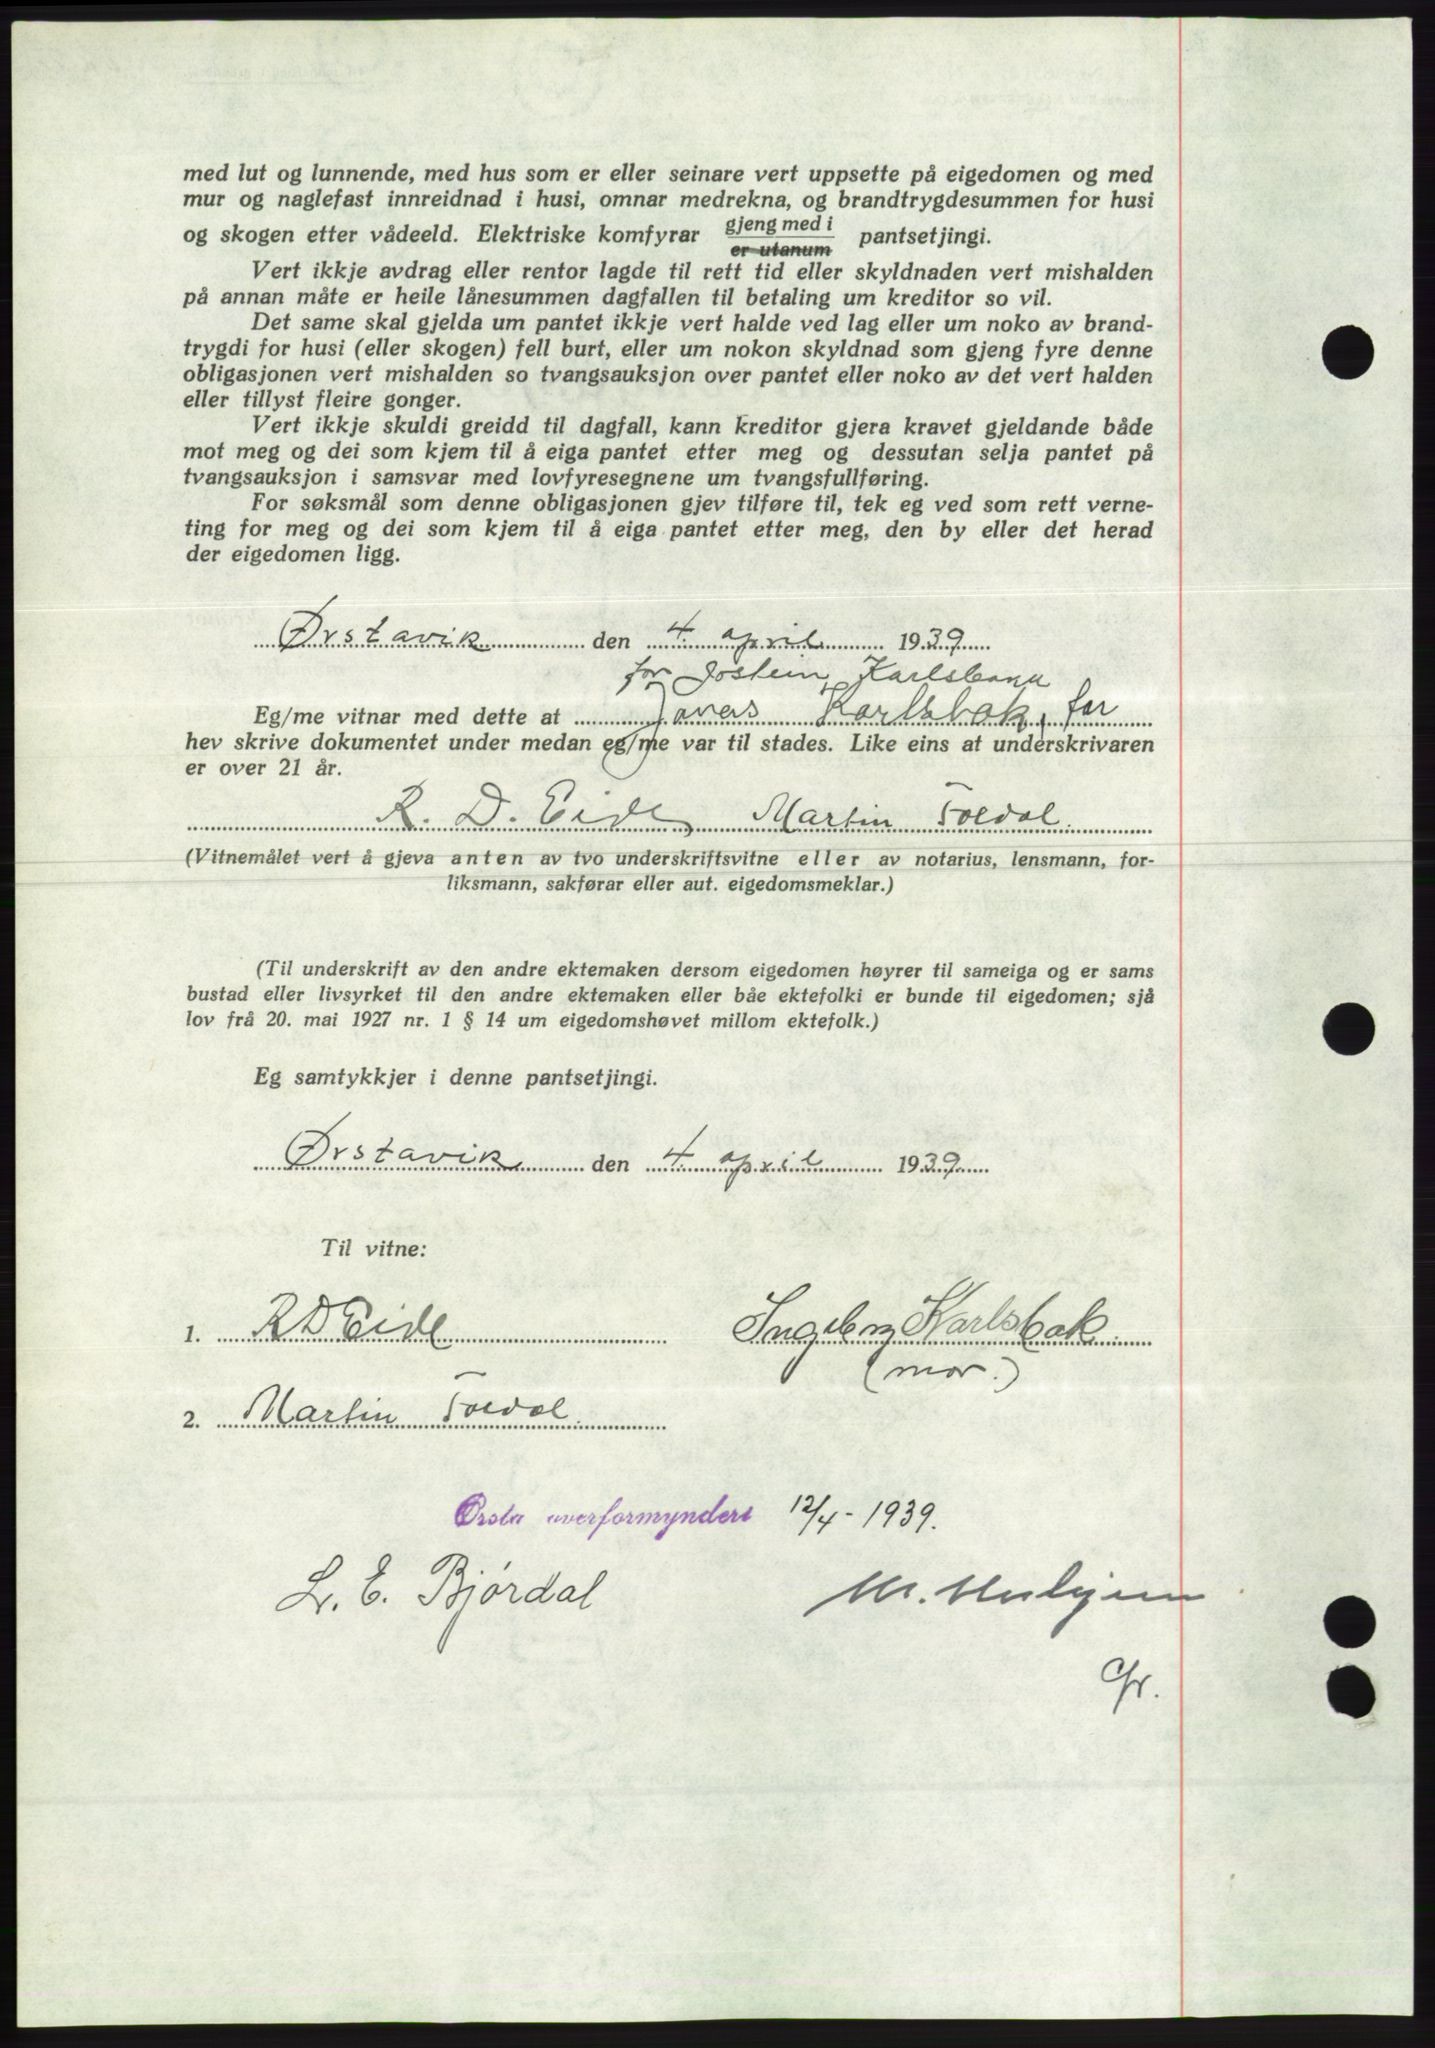 med lut og lunnende, med hus som er eller seinare vert uppsette på eigedomen og med
mur og naglefast innreidnad i husi, omnar medrekna, og brandtrygdesummen for husi
og skogen etter vådeeld. Elektriske komfyrar gjeng med i / er utanum pantsetjingi.
Vert ikkje avdrag eller rentor lagde til rett tid eller skyldnaden vert mishalden
på annan måte er heile lånesummen dagfallen til betaling um kreditor so vil.
Det same skal gjelda um pantet ikkje vert halde ved lag eller um noko av brand-
trygdi for husi (eller skogen) fell burt, eller um nokon skyldnad som gjeng fyre denne
obligasjonen vert mishalden so tvangsauksjon over pantet eller noko av det vert halden
eller tillyst fleire gonger.
Vert ikkje skuldi greidd til dagfall, kann kreditor gjera kravet gjeldande både
mot meg og dei som kjem til å eiga pantet etter meg og dessutan selja pantet på
tvangsauksjon i samsvar med lovfyresegnene um tvangsfullføring.
For søksmål som denne obligasjonen gjev tilføre til, tek eg ved som rett verne-
ting for meg og dei som kjem til å eiga pantet etter meg, den by eller det herad
der eigedomen ligg.
Ørstavik den 4 april 1939
for Jostein
Eg/me vitnar med dette at Karlsbak, far
hev skrive dokumentet under medan eg/me var til stades. Like eins at underskrivaren
er over 21 år.
R. D. Eide Martin
(Vitnemålet vert å gjeva anten av tvo underskriftsvitne eller av notarius, lensmann, for-
liksmann, sakførar eller aut. eigedomsmeklar.)
(Til underskrift av den andre ektemaken dersom eigedomen høyrer til sameiga og er sams
bustad eller livsyrket til den andre ektemaken eller båe ektefolki er bunde til eigedomen; sjå
lov frå 20. mai 1927 nr. 1 § 14 um eigedomshøvet millom ektefolk.)
Eg samtykkjer i denne pantsetjingi.
Ørstavik den 4 april 1939
Til vitne:
1. R D Eide Karlsbak
(mor.)
2. Martin
Ørsta overformynderi 12/4 - 1939.
L. E. Bjørdal